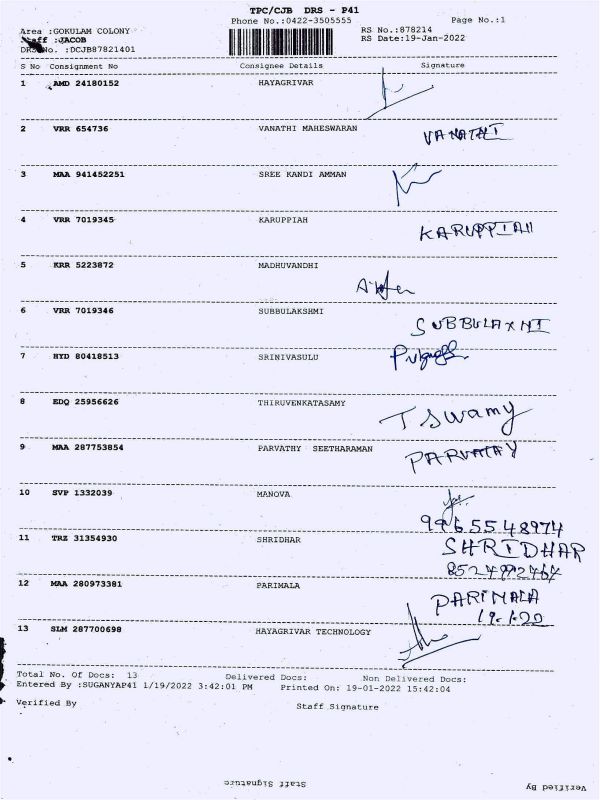 TPC/CJB DRS - P41
Phone No.:0422-3505555 Page No.:1
Area :GOKULAM COLONY RS No.:878214
Staff :JACOB RS Date:19-Jan-2022
DRS No. :DCJB87821401
S No Consignment No Consignee Details Signature
1 AMD 24180152 HAYAGRIVAR
2 VRR 654736 VANATHI MAHESWARAN VANATHI
3 MAA 941452251 SREE KANDI AMMAN
4 VRR 7019345 KARUPPIAH KARUPPIAH
5 KRR 5223872 MADHUVANDHI
6 VRR 7019346 SUBBULAKSHMI SUBBULAXMI
7 HYD 80418513 SRINIVASULU
8 EDQ 25956626 THIRUVENKATASAMY T Swamy
9 MAA 287753854 PARVATHY SEETHARAMAN PARVATHY
10 SVP 1332039 MANOVA
9965548974
11 TRZ 31354930 SHRIDHAR SHRIDHAR
12 MAA 280973381 PARIMALA PARIMALA
13 SLM 287700698 HAYAGRIVAR TECHNOLOGY
Total No. Of Docs: 13 Delivered Docs: Non Delivered Docs:
Entered By :SUGANYAP41 1/19/2022 3:42:01 PM Printed On: 19-01-2022 15:42:04
Verified By Staff Signature
Staff Signature Verified By